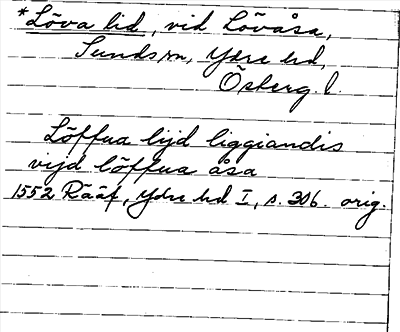 *Löva lid, vid Lövåsa,
Sunds sn, Ydre hd,
Österg. l.
Löffua lijd liggiandis
vijd löffua åsa
1552 Rääf, Ydre hd I, s. 306. orig.